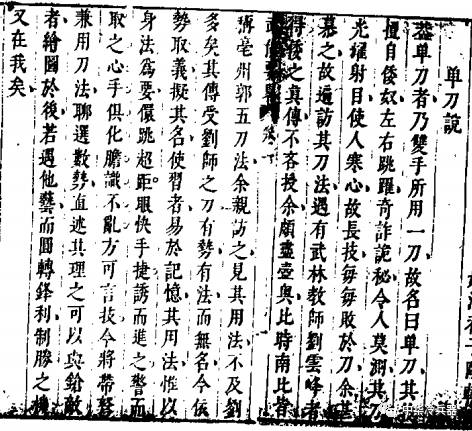 單刀說
盖单刀者乃雙手所用一刀故名曰单刀其
擅自倭奴左右跳躍奇詐詭秘令人莫測其刀
光耀射目使人寒心故長技每每敗於刀余甚
慕之故遍訪其刀法遇有武林教師劉雲峰者
得倭之真傳不吝授余頗盡壼奥比時南北皆
稱亳州郭五刀法余親訪之見其用法不及劉
多矣其傳受劉師之刀有勢有法而無名今依
勢取義擬其名使習者易於記憶其用法惟以
身法爲要儇跳超距眼快手捷誘而進之驚而
取之心手俱化膽識不亂方可言技今將帶弩
兼用刀法聊選數勢直述其理之可以與鎗敵
者繪圖於後若遇他藝而圓轉鋒利制勝之機
又在我矣